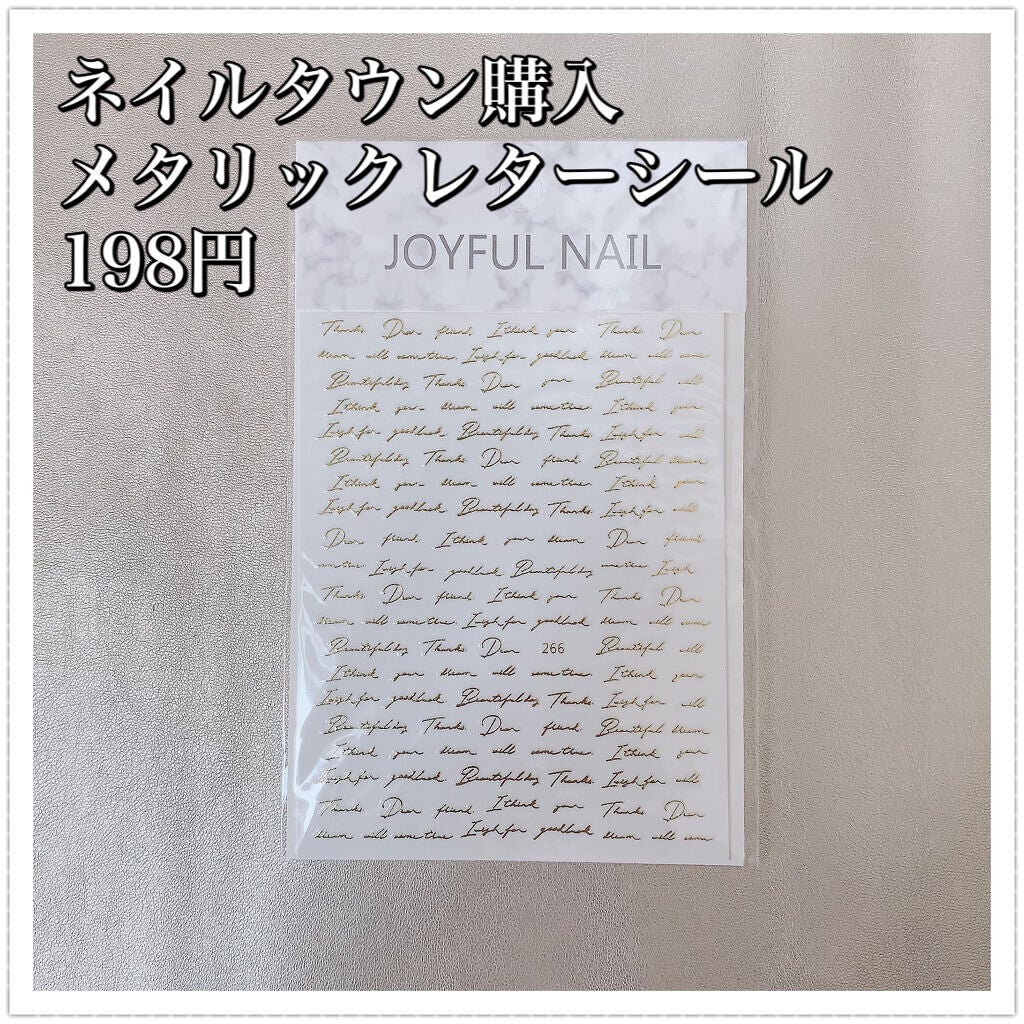 ネイルタウン購入
メタリックレターシール
198円
JOYFUL NAIL
Thanks. Dear friend. I think your Thanks. Dear
dream will come true. I wish for good luck dream will come
Beautiful day Thanks. Dear your Beautiful will
I think your dream will come true. I think your
I wish for good luck. Beautiful day Thanks. I wish for will
Beautiful day Thanks. Dear friend. Beautiful dream
I think your dream will come true. I think your
I wish for good luck. Beautiful day Thanks. I wish for will
Dear friend. I think your dream Dear friend
come true. I wish for good luck. Beautiful day come true. I wish
Thanks. Dear friend. I think your Thanks. Dear
dream will come true. I wish for good luck. dream will come
Beautiful day Thanks. Dear 266 Beautiful will
I think your dream will come true. I think your
I wish for good luck. Beautiful day Thanks. I wish for will
Beautiful day Thanks. Dear friend. Beautiful dream
I think your dream will come true. I think your
I wish for good luck. Beautiful day Thanks. I wish for will
Thanks. Dear friend. I think your Thanks. Dear
dream will come true I wish for good luck dream will come